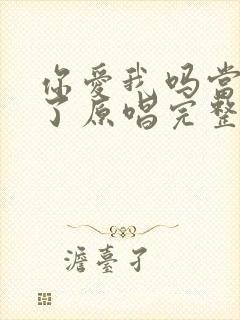 你愛我吗當
了原唱完整
澹臺子